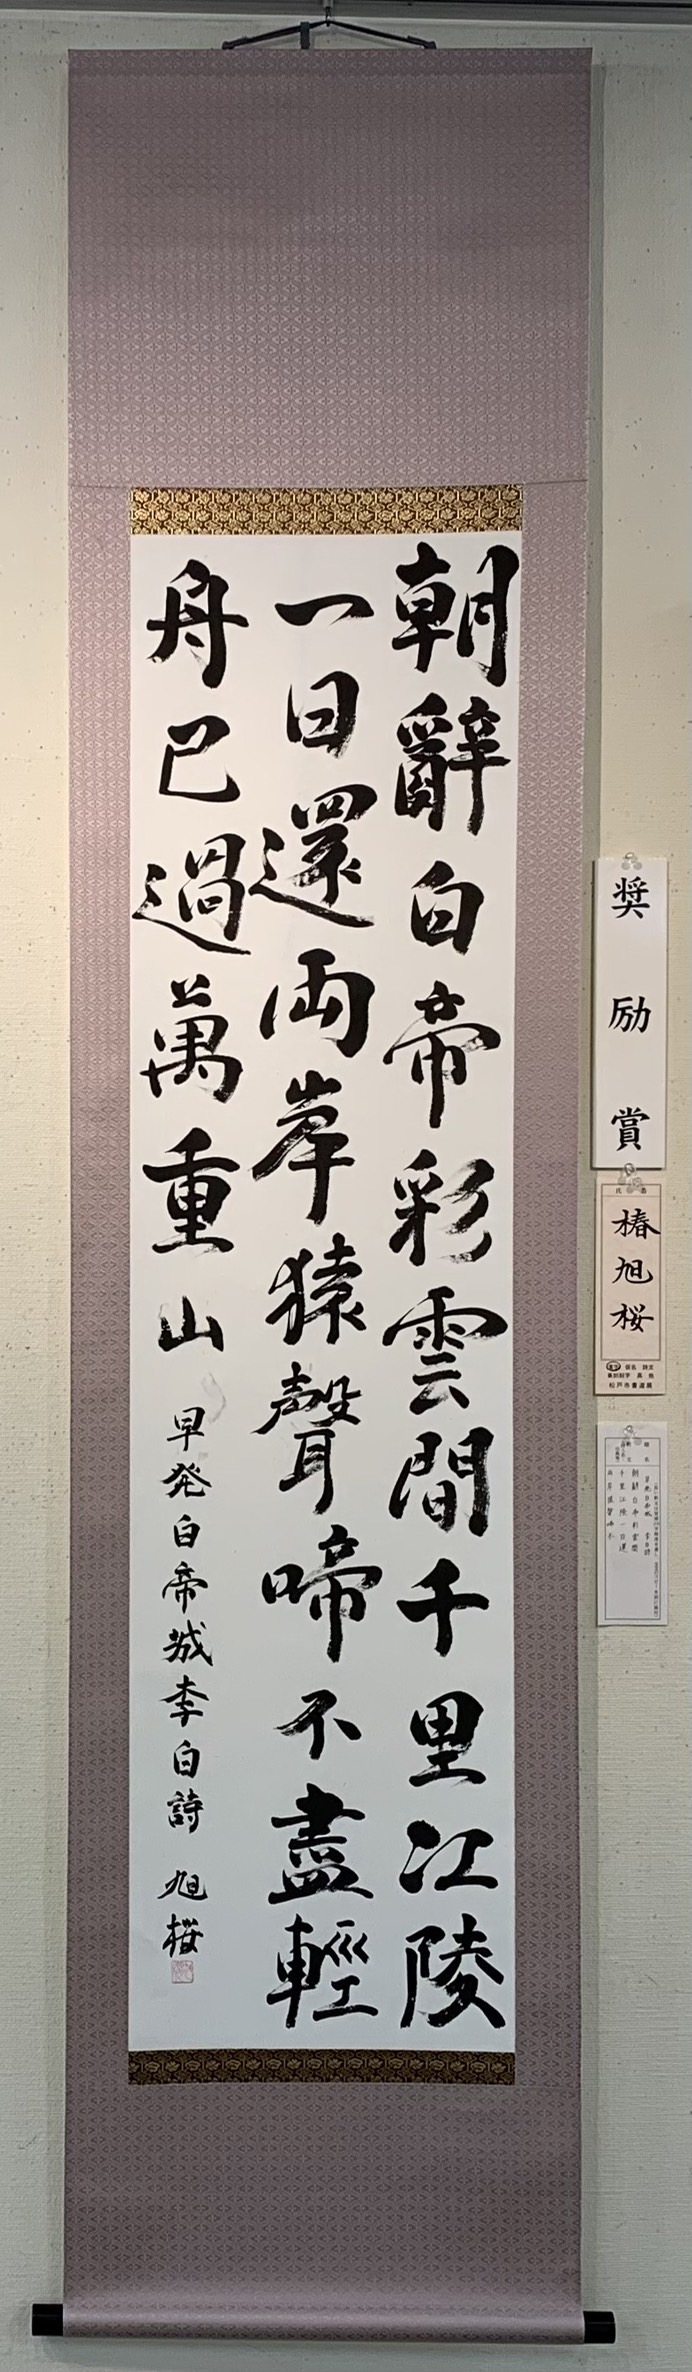 朝辭白帝彩雲間千里江陵
一日還両岸猿聲啼不盡輕
舟已過萬重山
早発白帝城李白詩 旭桜
奨励賞
氏名
椿旭桜
漢字 仮名 詩文
篆刻刻字 具 他
松戸市書道展
題名
早発白帝城 李白詩
朝辭白帝彩雲間
千里江陵一日還
両岸猿聲啼不